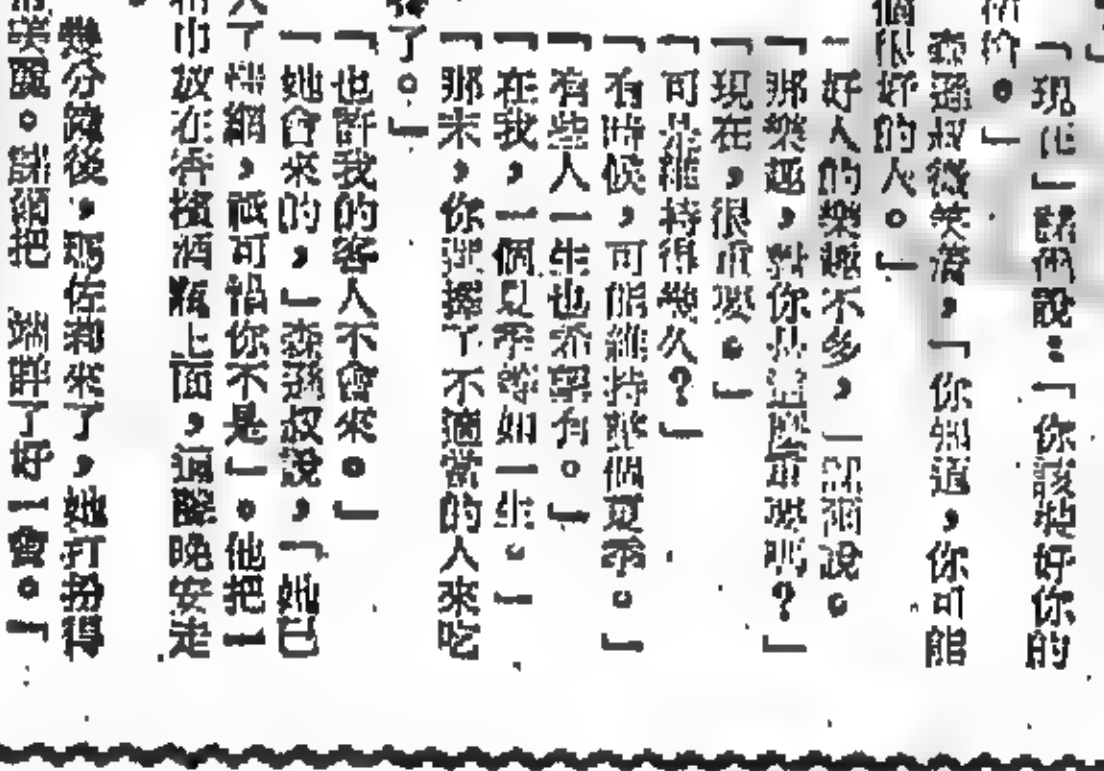 」
「現在」諾爾說：「你該裝好你的
。」
森遜叔微笑着，「你知道，你可能
個很好的人。」
「好人的樂趣不多，」諾爾說。
「那樂趣，對你是這麼重要嗎？」
「現在，很重要。」
「可是維持得幾久？」
「有時候，可能維持整個夏季。」
「有些人一生也希望有。」
「在我，一個夏季等如一生。」
「那末，你選擇了不適當的人來吃
了。」
「也許我的客人不會來。」
「她會來的，」森遜叔說，「她已
了，祗可惜你不是」。他把一
巾放在香檳酒瓶上面，道聲晚安走
幾分鐘後，瑪佐莉來了，她打扮得
美麗。諾爾把 端詳了好一會。「